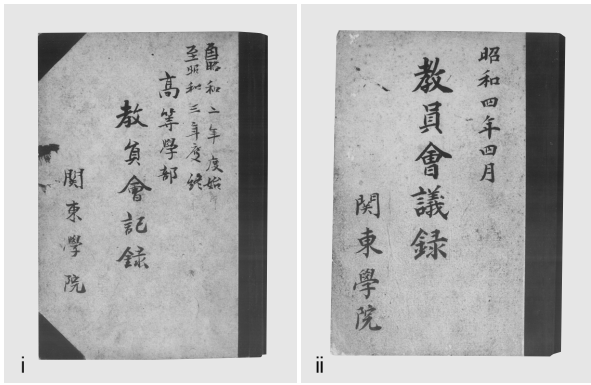 自昭和二年度始
至昭和三年度終
高等學部
教員會記録
関東學院
i
昭和四年四月
教員會議録
関東學院
ii